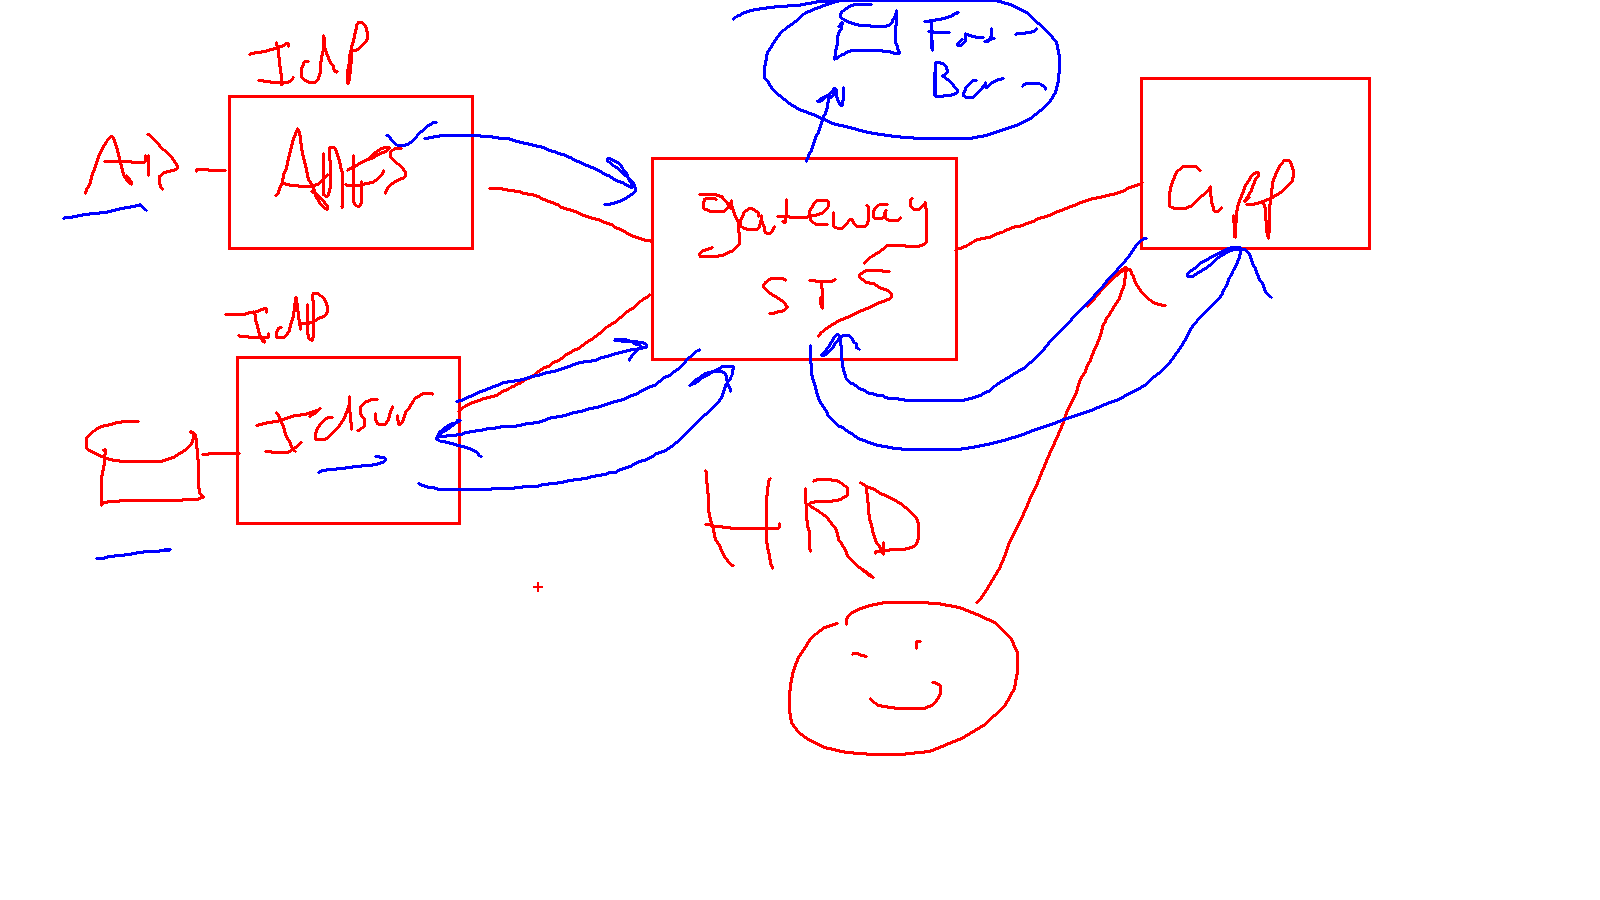 IdP
AD
ADFS
IdP
Idsvr
gateway
STS
Foo -
Bar -
app
HRD